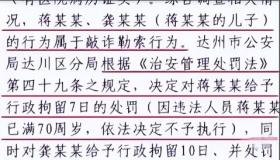 情况，综合调查相关情
况，蒋某某、龚某某（蒋某某的儿子）
的行为属于敲诈勒索行为。达州市公安
局达川区分局根据《治安管理处罚法》
第四十九条之规定，决定对蒋某某给予
行政拘留7日的处罚（因违法人员蒋某某
已满70周岁，依法决定不予执行），同
时对龚某某给予行政拘留10日、并处罚